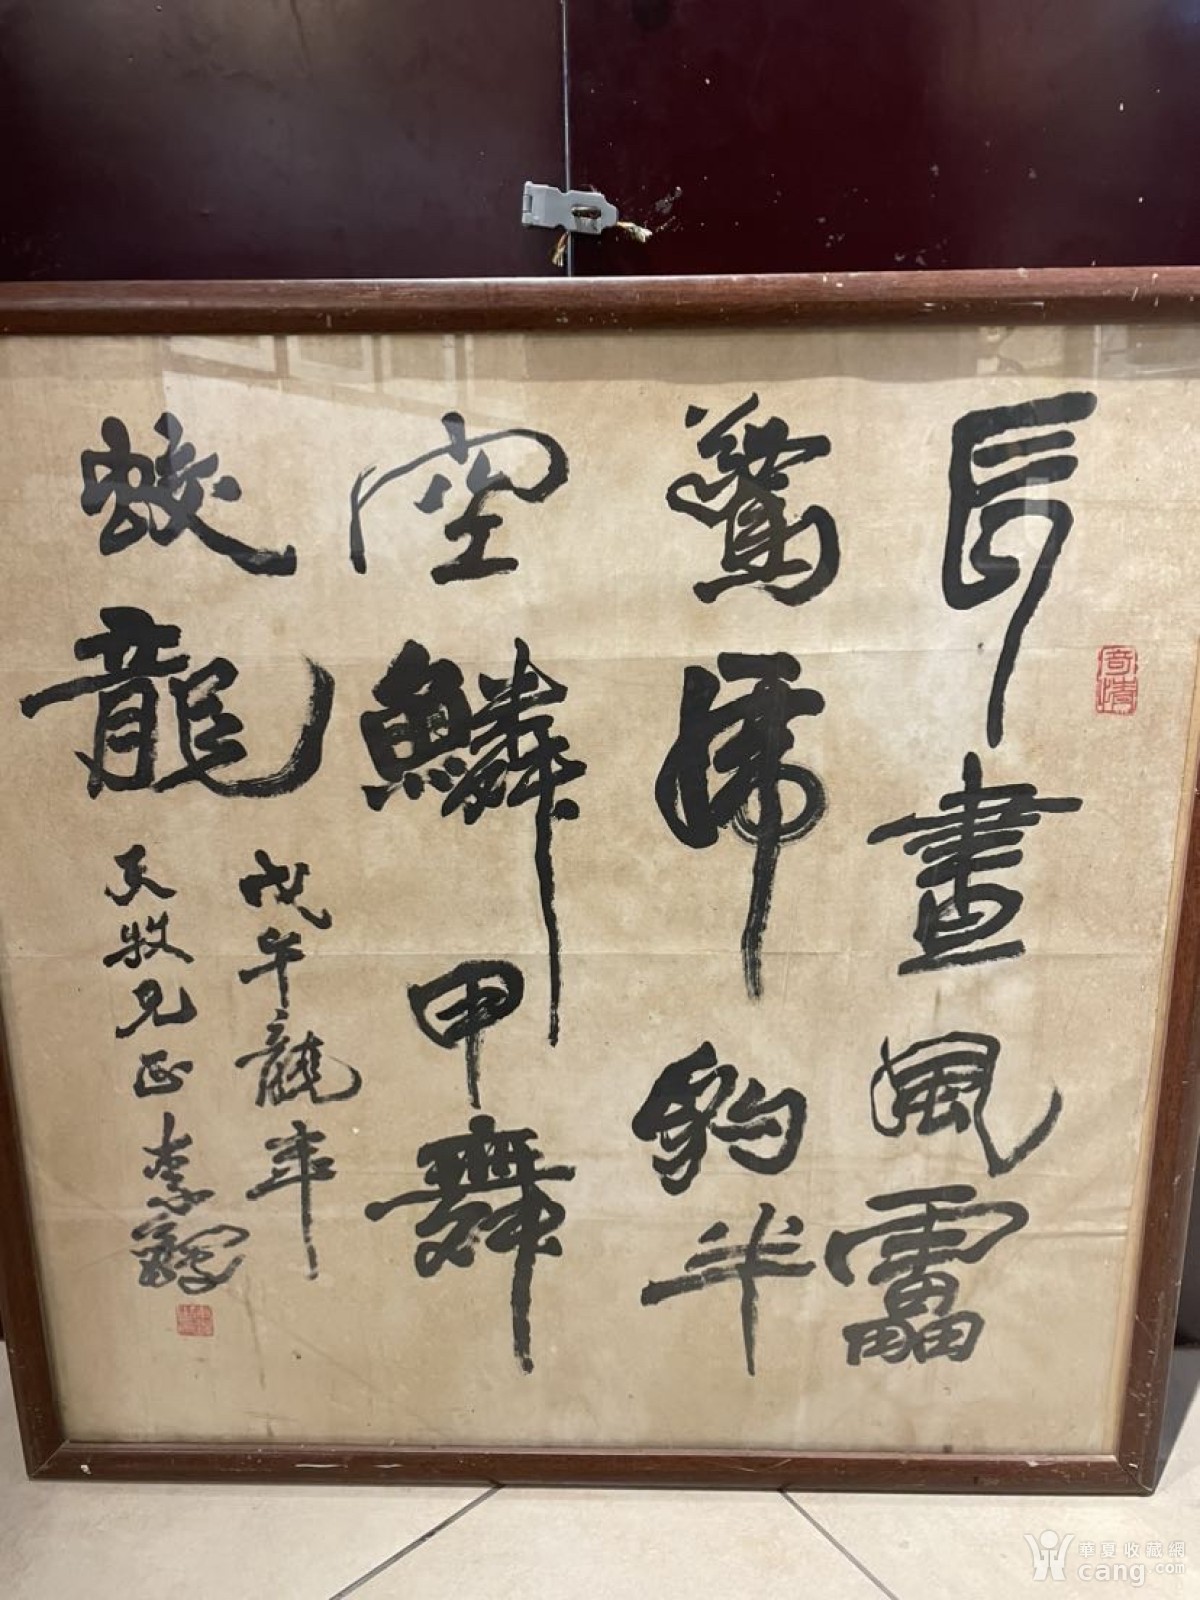 長晝風雷
驚虎豹半
空鱗甲舞
蛟龍
戊午龍年
天牧兄正 李鱓
奇情
華夏收藏網
cang.com